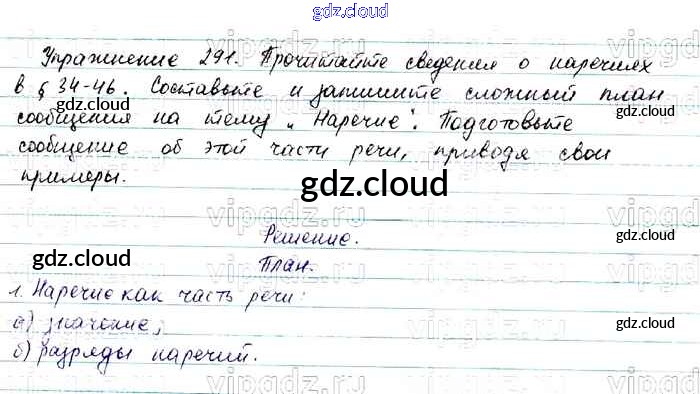 gdz.cloud
Упражнение 291. Прочитайте сведения о наречиях
в § 34-46. Составьте и запишите сложный план
сообщения на тему „Наречие". Подготовьте
сообщение об этой части речи, приводя свои
примеры.
gdz.cloud
gdz.cloud
Решение.
План.
gdz.cloud
gdz.cloud
1. Наречие как часть речи:
а) значение;
gdz.cloud
б) разряды наречий.
vipgdz.ru